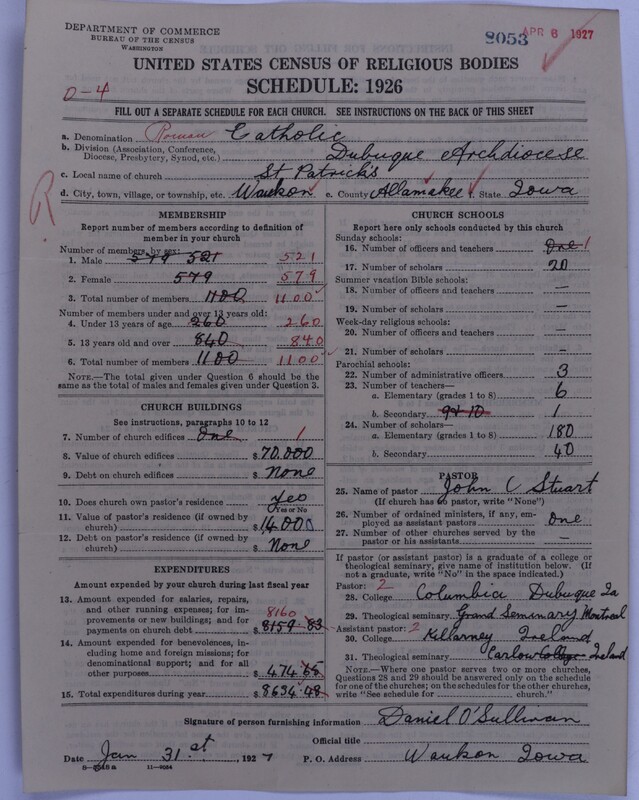 DEPARTMENT OF COMMERCE
BUREAU OF THE CENSUS
WASHINGTON
8053 APR 6 1927
UNITED STATES CENSUS OF RELIGIOUS BODIES
SCHEDULE: 1926
0-4
FILL OUT A SEPARATE SCHEDULE FOR EACH CHURCH. SEE INSTRUCTIONS ON THE BACK OF THIS SHEET
a. Denomination Roman Catholic
b. Division (Association, Conference, Diocese, Presbytery, Synod, etc.) Dubuque Archdiocese
c. Local name of church St Patrick's
d. City, town, village, or township, etc. Waukon e. County Allamakee f. State Iowa
R
MEMBERSHIP
Report number of members according to definition of
member in your church
Number of members by sex:
1. Male 579 521 521
2. Female 579 579
3. Total number of members 1100 1100
Number of members under and over 13 years old:
4. Under 13 years of age 260 260
5. 13 years old and over 840 840
6. Total number of members 1100 1100
NOTE.—The total given under Question 6 should be
same as the total of males and females given under Question 3.
CHURCH BUILDINGS
See instructions, paragraphs 10 to 12
7. Number of church edifices One 1
8. Value of church edifices $ 70.000
9. Debt on church edifices $ None
10. Does church own pastor's residence Yes
Yes or No
11. Value of pastor's residence (if owned by
church) $ 14000
12. Debt on pastor's residence (if owned by
church) $ None
EXPENDITURES
Amount expended by your church during last fiscal year
13. Amount expended for salaries, repairs,
and other running expenses; for im-
provements or new buildings; and for
payments on church debt $ 8159.83
8160
14. Amount expended for benevolences, in-
cluding home and foreign missions; for
denominational support; and for all
other purposes $ 474.65
15. Total expenditures during year $ 8634.48
CHURCH SCHOOLS
Report here only schools conducted by this church
Sunday schools:
16. Number of officers and teachers One 1
17. Number of scholars 20
Summer vacation Bible schools:
18. Number of officers and teachers —
19. Number of scholars —
Week-day religious schools:
20. Number of officers and teachers —
21. Number of scholars —
Parochial schools:
22. Number of administrative officers 3
23. Number of teachers—
a. Elementary (grades 1 to 8) 6
b. Secondary 9&10 1
24. Number of scholars—
a. Elementary (grades 1 to 8) 180
b. Secondary 40
PASTOR
25. Name of pastor John C Stuart
(If church has no pastor, write "None")
26. Number of ordained ministers, if any, em-
ployed as assistant pastors One
27. Number of other churches served by the
pastor or his assistants —
If pastor (or assistant pastor) is a graduate of a college or
theological seminary, give name of institution below. (If
not a graduate, write "No" in the space indicated.)
Pastor: 2
28. College Columbia Dubuque Ia
29. Theological seminary Grand Seminary Montreal
Assistant pastor: 2
30. College Killarney Ireland
31. Theological seminary Carlow College Ireland
NOTE.—Where one pastor serves two or more churches,
Questions 28 and 29 should be answered only on the schedule
for one of the churches; on the schedules for the other churches,
write "See schedule for church."
Signature of person furnishing information Daniel O'Sullivan
Official title
Date Jan 31st, 1927 P. O. Address Waukon Iowa
11—9064